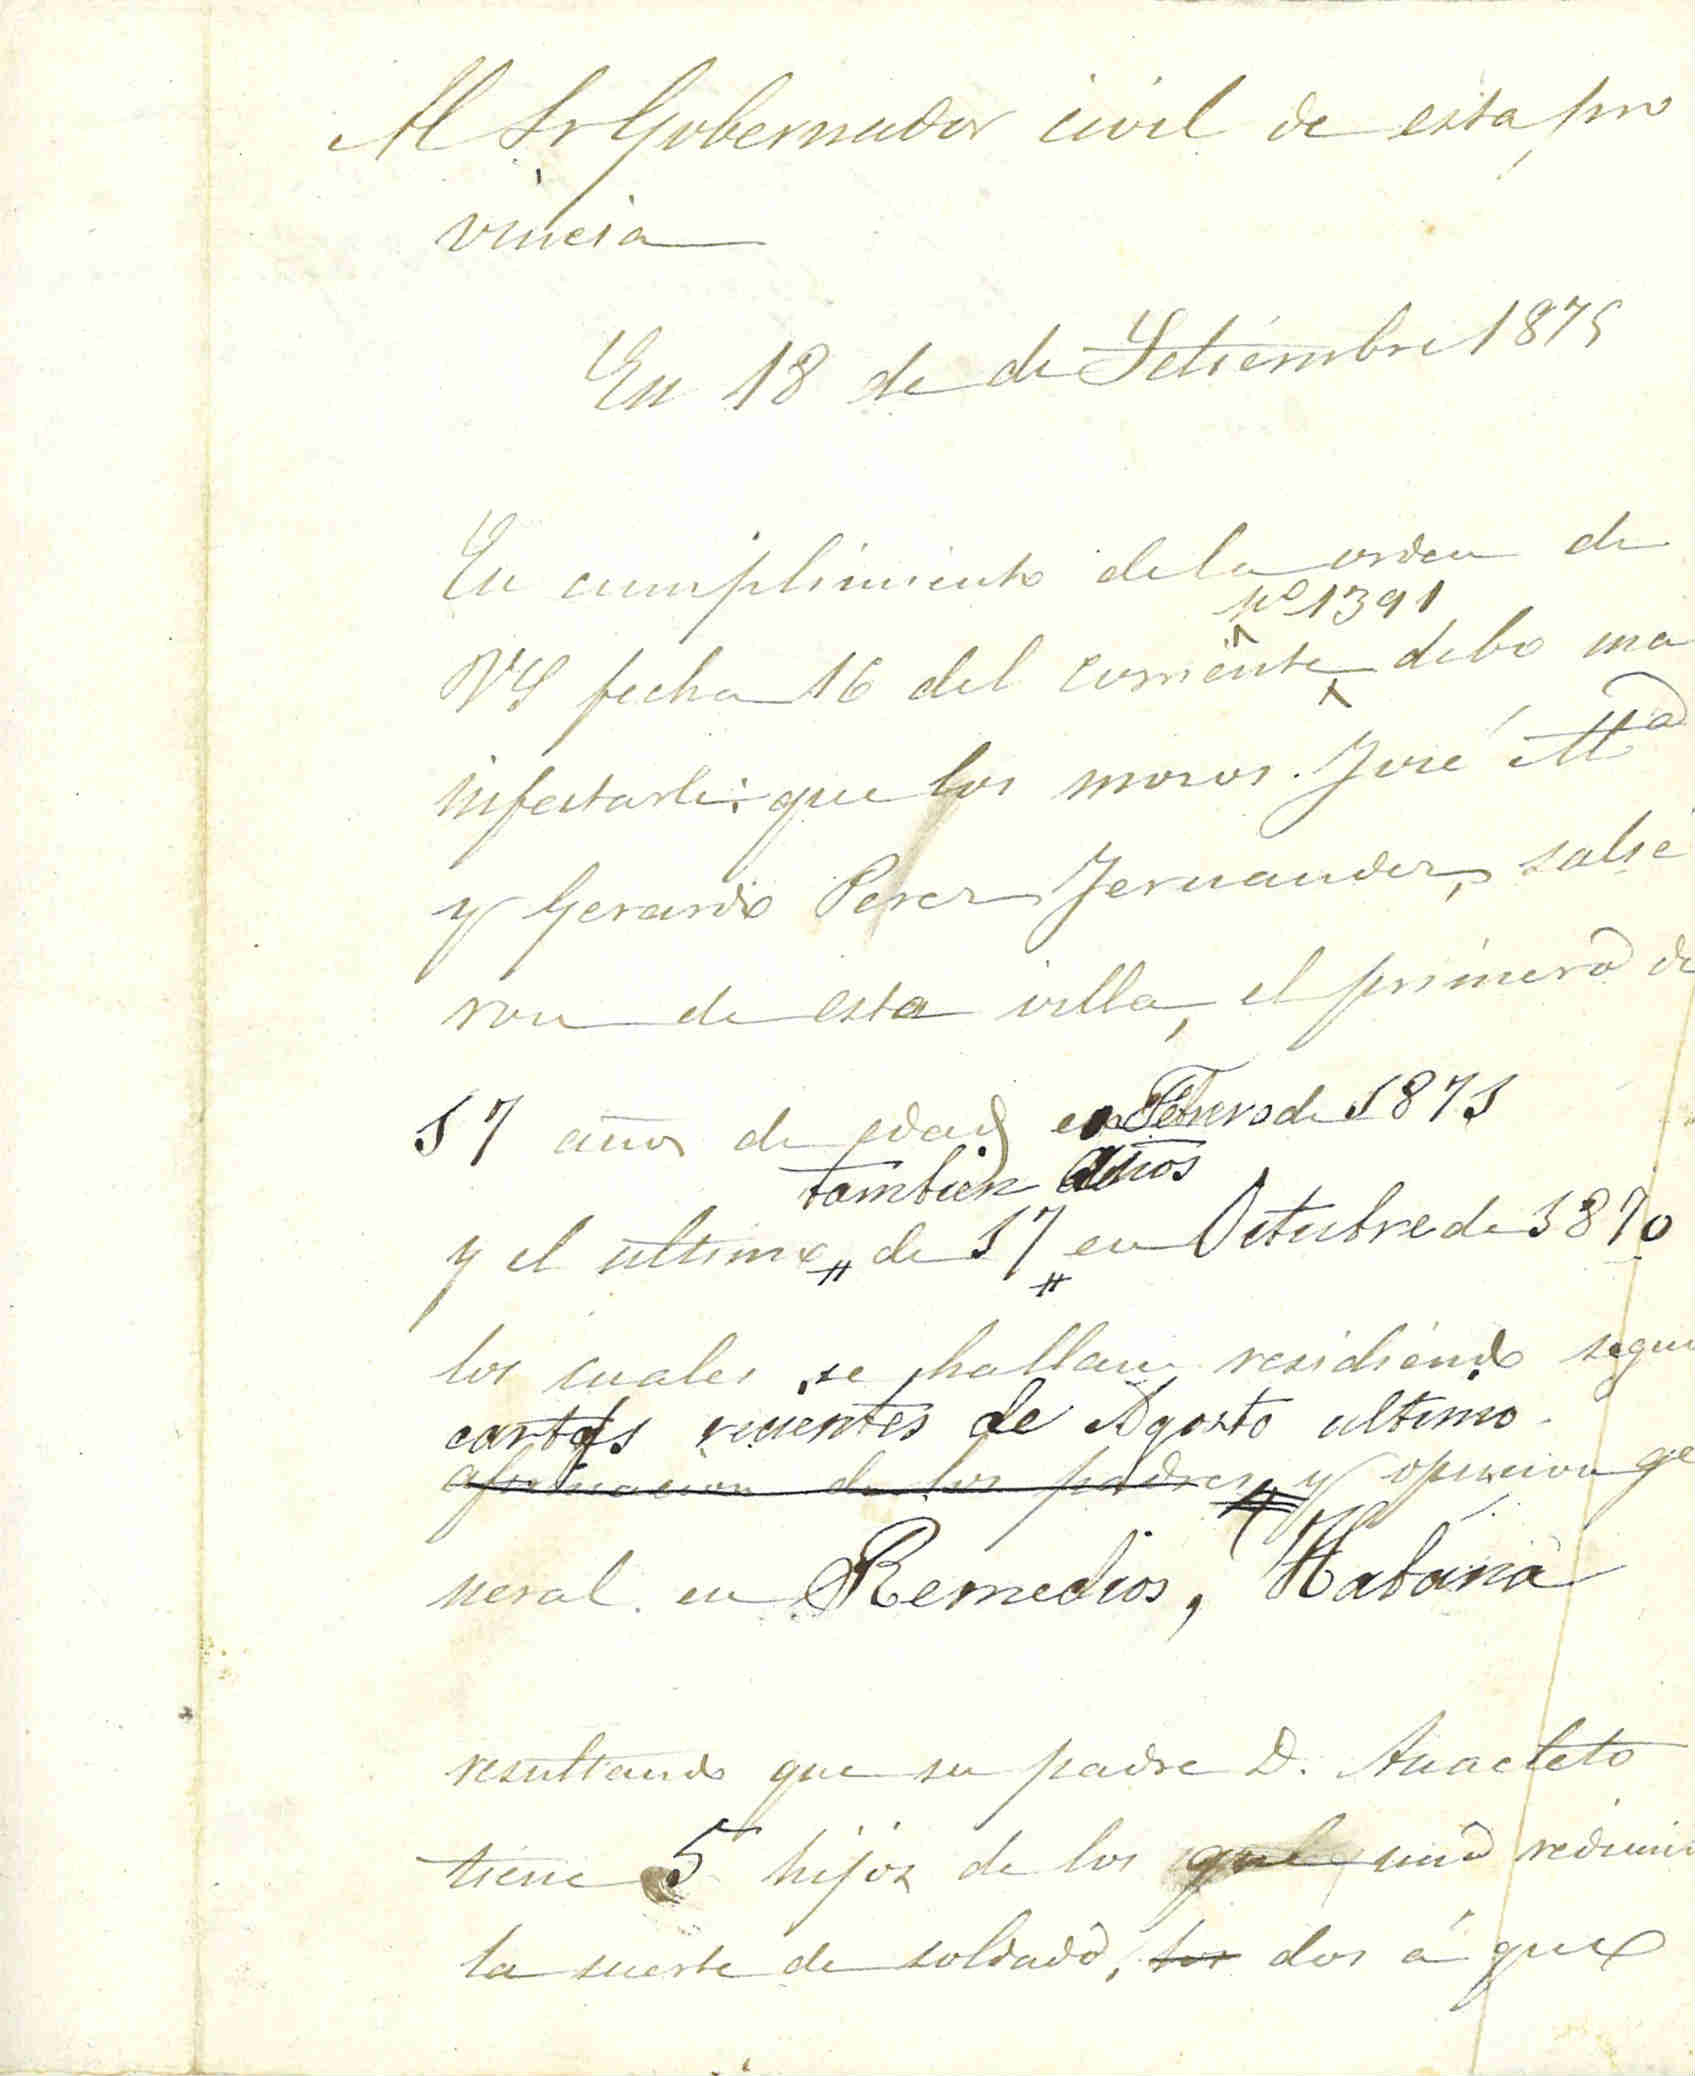 Al Sr Gobernador civil de esta pro
vincia
En 18 de de Setiembre 1875
En cumplimiento de la orden de
nº 1391
VS fecha 16 del corriente debo ma
nifestarle: que los mozos José Mª
y Gerardo Perez Fernandez, salie
ron de esta villa, el primero de
17 años de edad en Febrero de 1871
tambien años
y el ultimo, de 17 en Octubre de 1870
los cuales se hallan residiendo segun
cartas recientes de Agosto ultimo
afirmacion de los padres y opinion ge
neral en Remedios, Habana
resultando que su padre D. Anacleto
tiene 5 hijos de los que uno redimió
la suerte de soldado, los dos á que